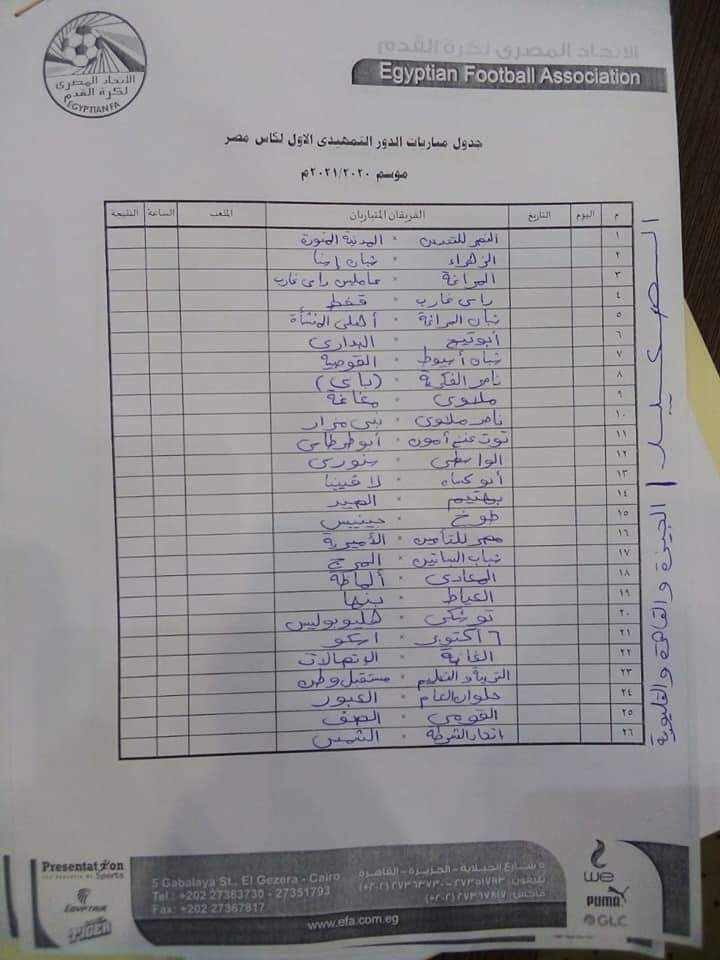 الاتحاد المصري لكرة القدم
Egyptian Football Association
الاتحاد المصرى
لكرة القدم
EGYPTIAN FA
جدول مباريات الدور التمهيدى الاول لكاس مصر
موسم ٢٠٢١/٢٠٢٠م
م اليوم التاريخ الفريقان المتباريان الملعب الساعة النتيجة
١ النصر للتعدين * المدينة المنورة
٢ الزهراء * شبان إسنا
٣ المراغة * عاملين راس غارب
٤ راس غارب * قفط
٥ شبان المراغة * أهلى المنشأة
٦ أبوتيج * البدارى
٧ شبان أسيوط * القوصية
٨ ناصر الفكرية * (باى)
٩ ملوى * مغاغة
١٠ ناصر ملوى * بنى مزار
١١ توت عنخ أمون * أبو قرقاص
١٢ الواسطى * سنورس
١٣ * لافيينا
١٤ بهتيم * الصيد
١٥ طوخ * جينيس
١٦ مصر للتأمين * الأميرية
١٧ شباب البساتين * المرج
١٨ المعادى * ألماظة
١٩ العياط * بنها
٢٠ * هليوبوليس
٢١ ٦ أكتوبر * اسكو
٢٢ الغابة * الإتصالات
٢٣ التربية والتعليم * مستقبل وطن
٢٤ حلوان العام * العبور
٢٥ القومى * الصف
٢٦ اتحاد الشرطة * الشمس
الصعيد / الجيزة والقاهرة والقليوبية
Presentation
Sports
EGYPTAIR
TIGER
5 Gabalaya St., El Gezera - Cairo
Tel.: +202 27363730 - 27351793
Fax: +202 27367817
٥ شارع الجبلاية - الجزيرة - القاهرة
تليفون: ٢٧٣٥١٧٩٣ - ٢٧٣٦٣٧٣٠ (٢٠٢+)
فاكس: ٢٧٣٦٧٨١٧ (٢٠٢+)
www.efa.com.eg
we
PUMA
GLC